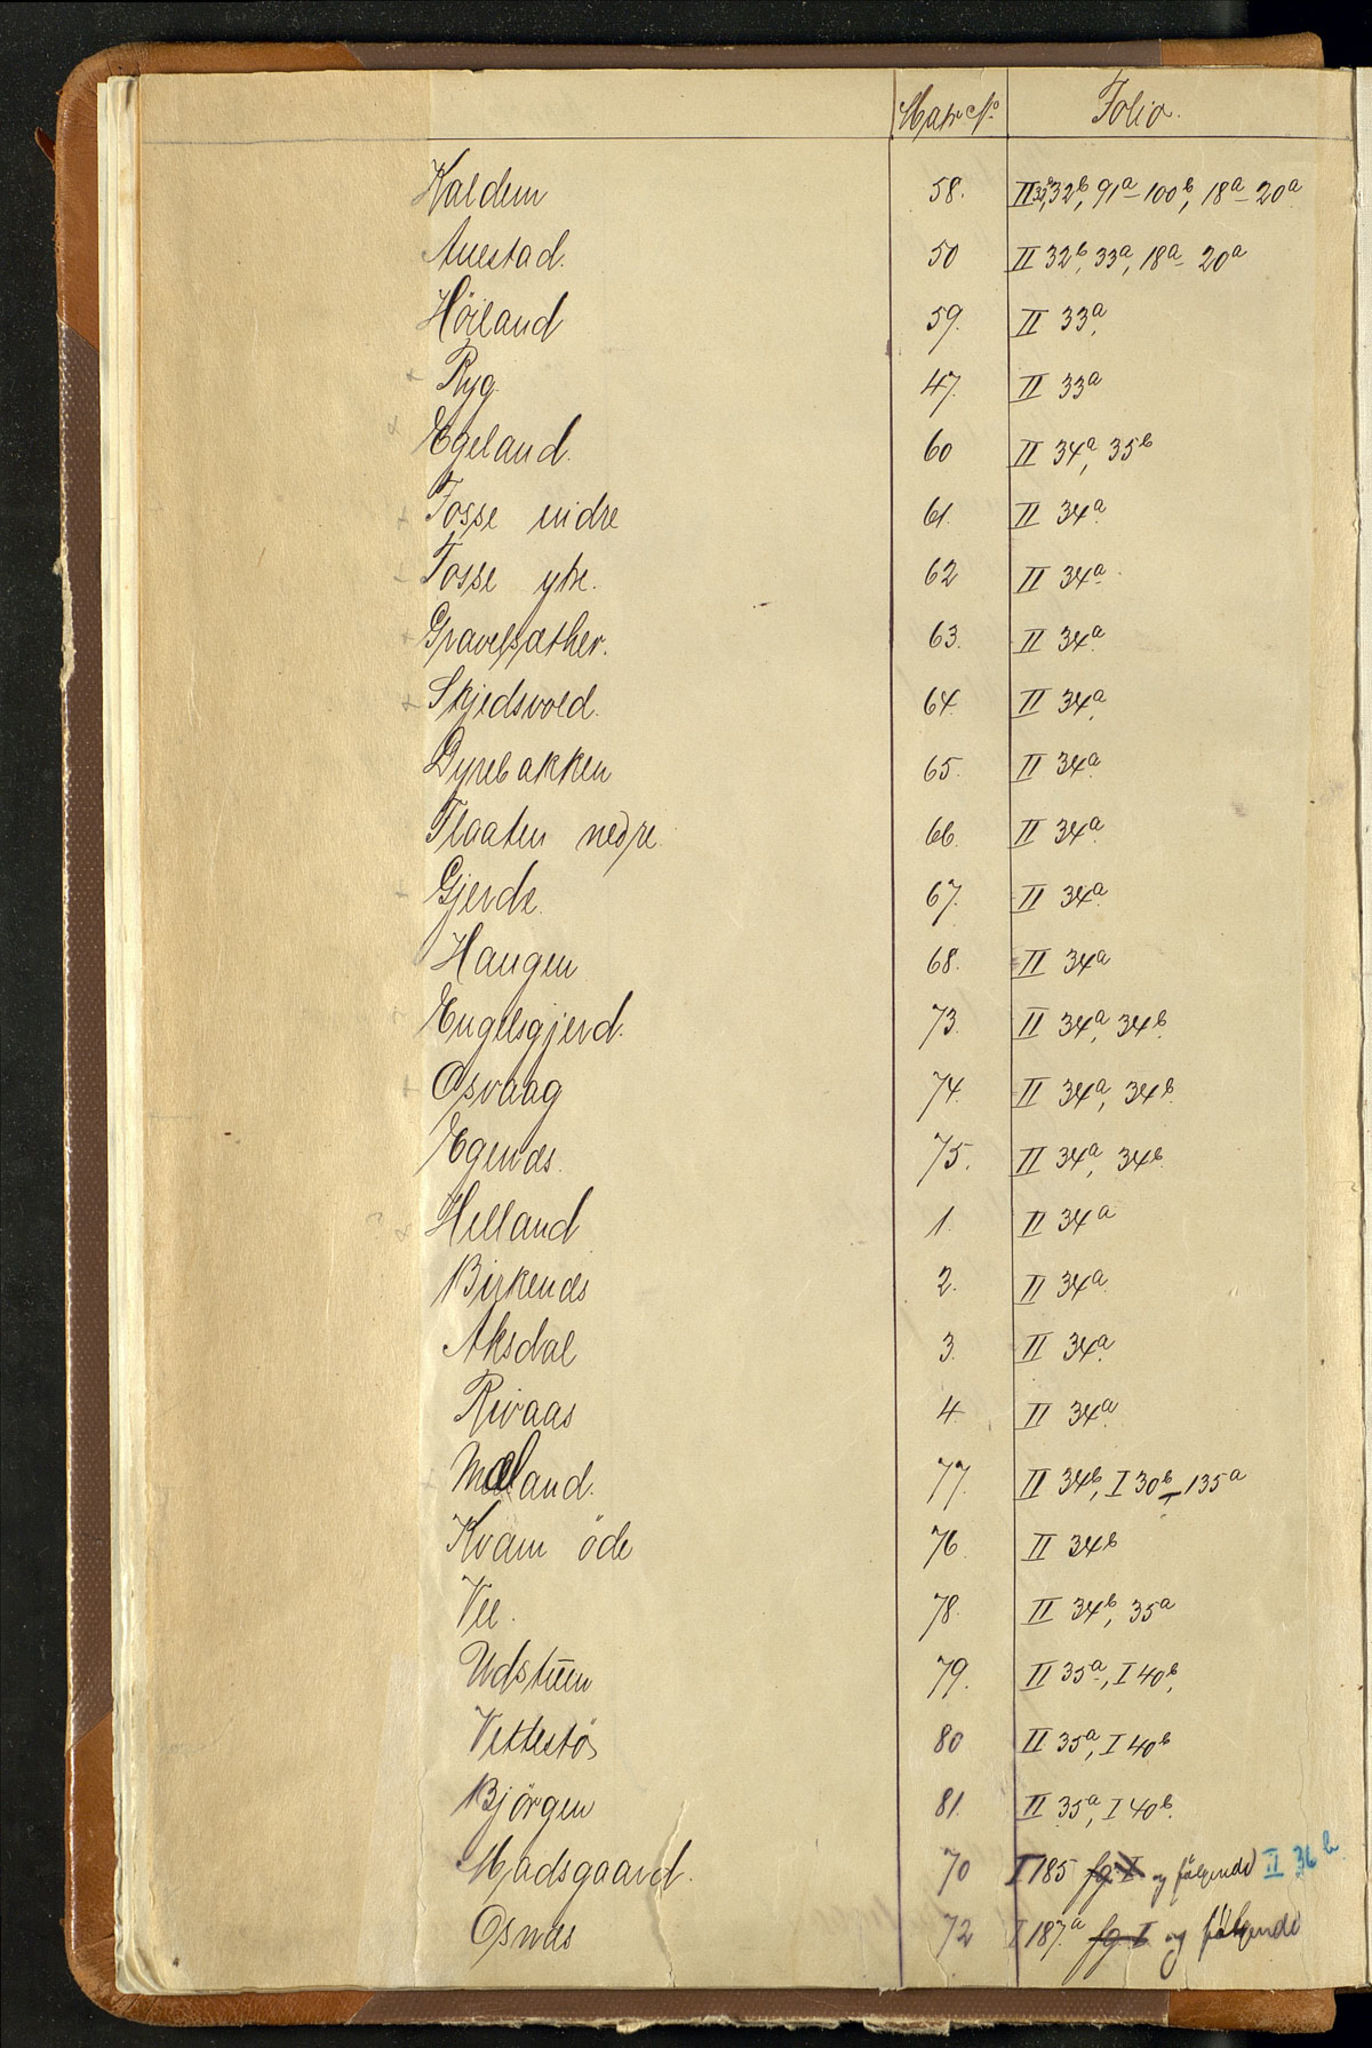 Matr No. Folio.
Kaldem 58. II 32a, 32b, 91a–100b, 18a–20a
Auestad. 50 II 32b, 33a, 18a–20a
Höiland 59. II 33a.
Ryg 47. II 33a
Egeland. 60 II 34a, 35b
Fosse indre 61. II 34a.
Fosse ytre. 62 II 34a.
Gravelsæther. 63. II 34a.
Skjedsvold. 64. II 34a.
Dynebakken 65. II 34a.
Flaaten nedre. 66. II 34a.
Gjerde. 67. II 34a.
Haugen 68. II 34a
Engelsgjerd. 73. II 34a, 34b.
Osvaag 74. II 34a, 34b.
Egenæs. 75. II 34a, 34b.
Helland 1. II 34a
Birkenæs 2. II 34a.
Aksdal 3. II 34a.
Rivaas 4. II 34a.
Mæland. 77. II 34b, I 30b–135a
Kvam öde 76. II 34b
Vee. 78. II 34b, 35a
Udstuen 79. II 35a, I 40b.
Vettestö 80 II 35a, I 40b
Björgen 81. II 35a, I 40b.
Madsgaard. 70 I 185 fg I og følgende II 36b.
Osnæs 72 I 187a. fg I og følgende